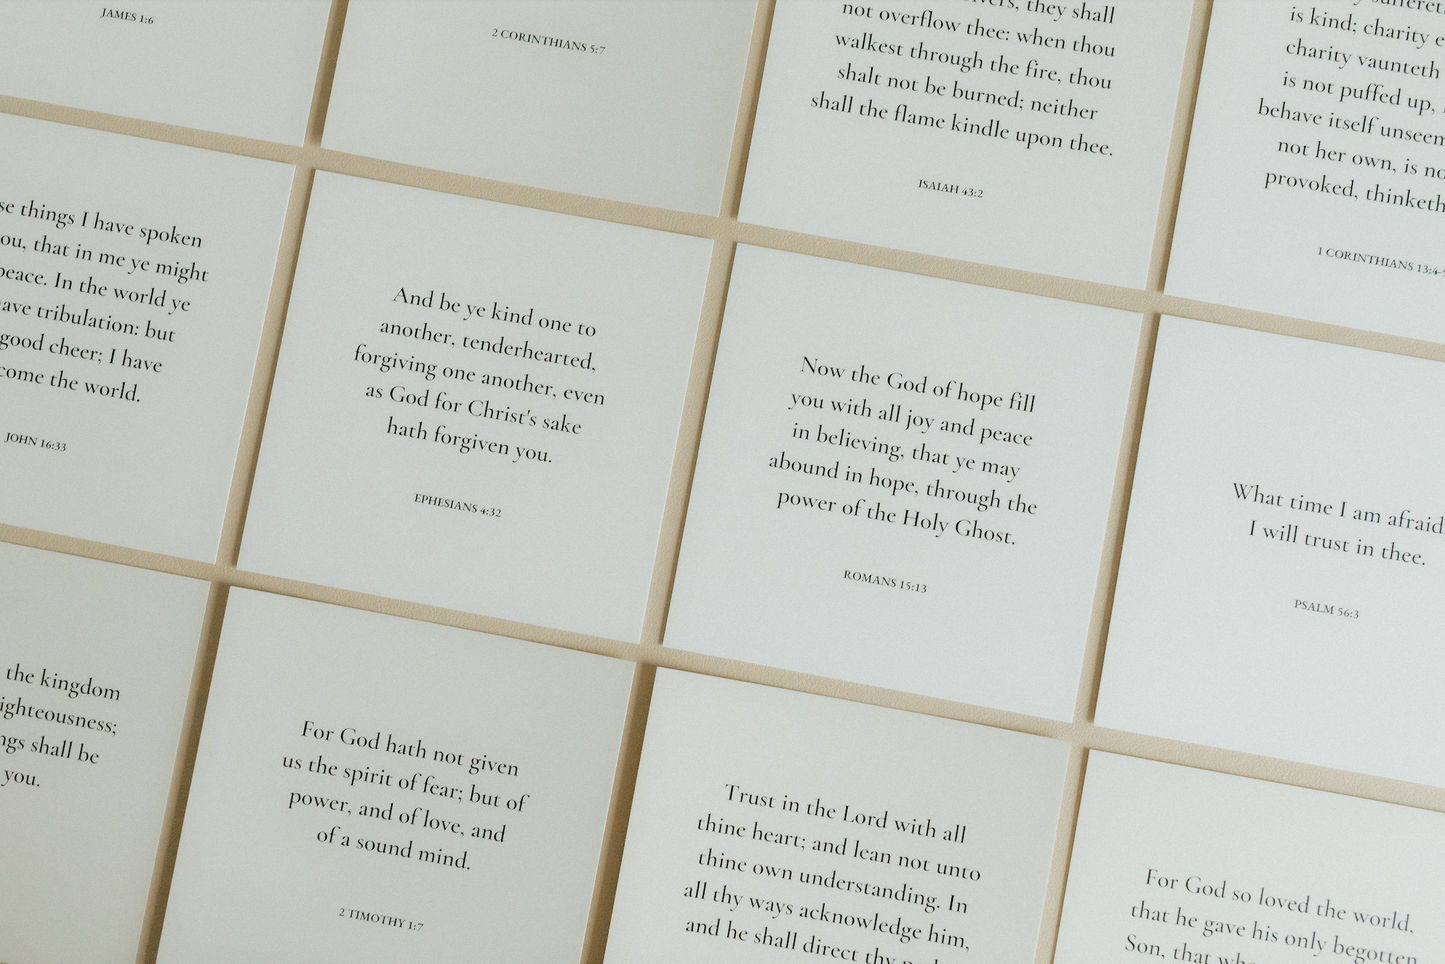 JAMES 1:6
2 CORINTHIANS 5:7
they shall
not overflow thee: when thou
walkest through the fire, thou
shalt not be burned; neither
shall the flame kindle upon thee.
ISAIAH 43:2
is kind; charity
charity vaunteth
is not puffed up,
behave itself
not her own, is
provoked,
1 CORINTHIANS 13:4-
things I have spoken
that in me ye might
peace. In the world ye
tribulation: but
good cheer; I have
the world.
JOHN 16:33
And be ye kind one to
another, tenderhearted,
forgiving one another, even
as God for Christ's sake
hath forgiven you.
EPHESIANS 4:32
Now the God of hope fill
you with all joy and peace
in believing, that ye may
abound in hope, through the
power of the Holy Ghost.
ROMANS 15:13
What time I am afraid,
I will trust in thee.
PSALM 56:3
the kingdom
shall be
you.
For God hath not given
us the spirit of fear; but of
power, and of love, and
of a sound mind.
2 TIMOTHY 1:7
Trust in the Lord with all
thine heart; and lean not unto
thine own understanding. In
all thy ways acknowledge him,
and he shall direct thy
For God so loved the world,
that he gave his only begotten
Son, that